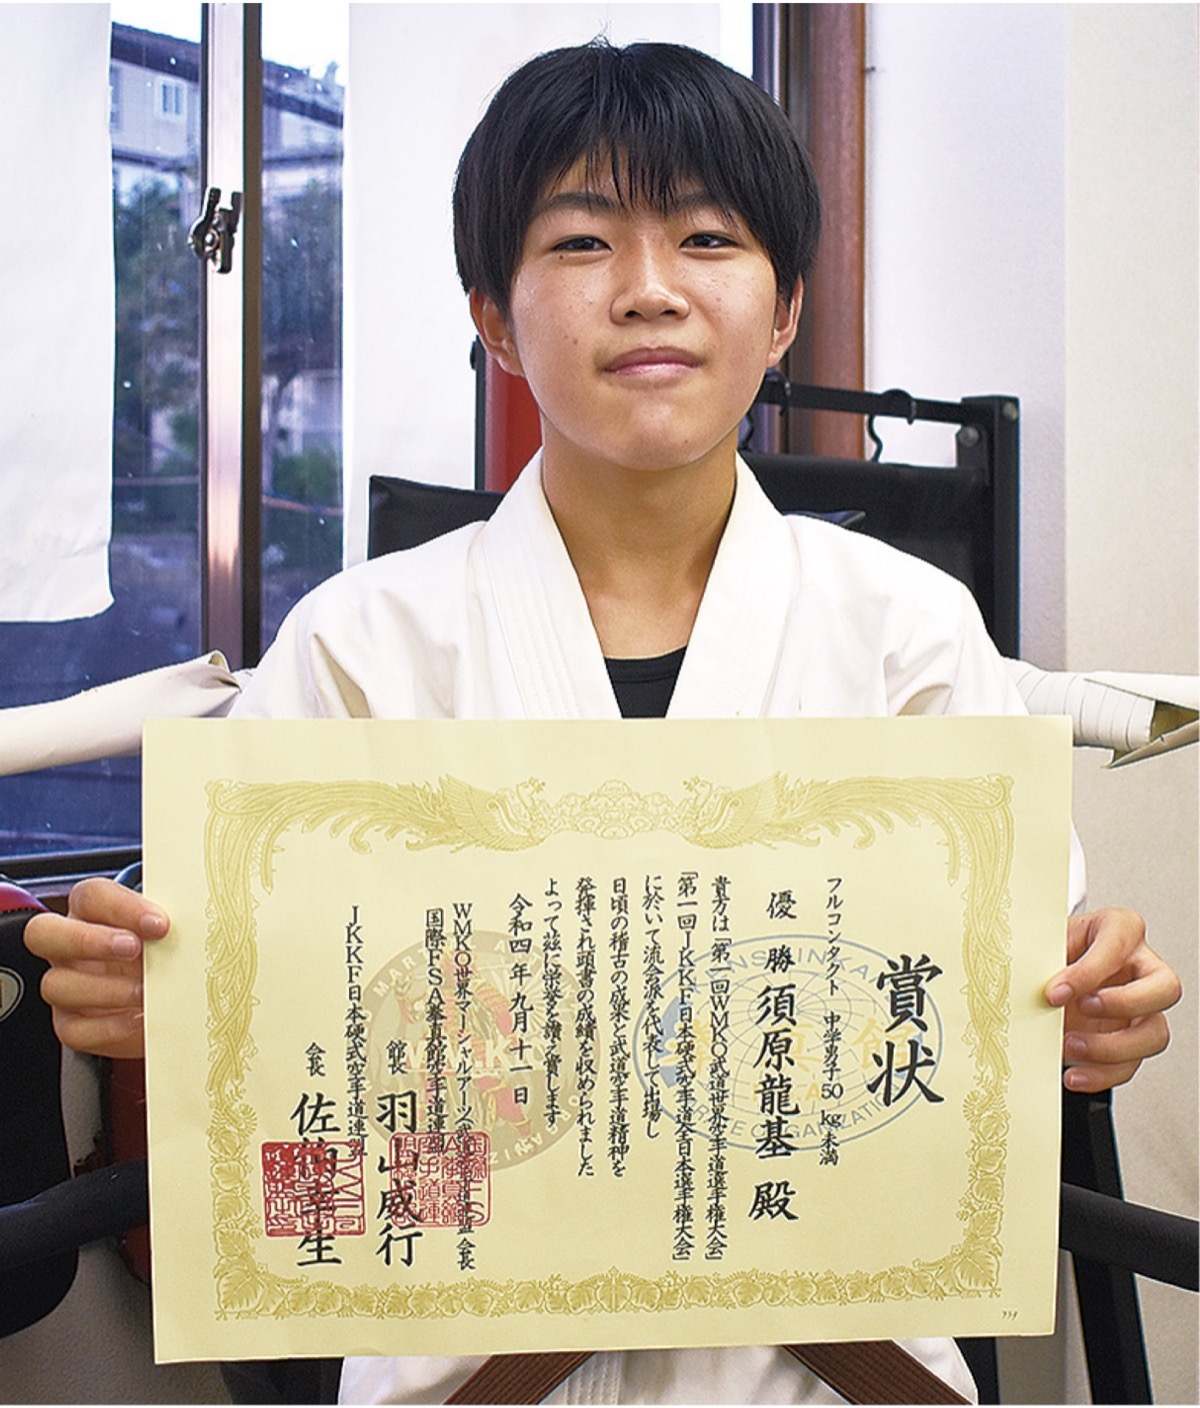 賞状
フルコンタクト 中学男子50kg未満
優勝 須原龍基 殿
貴方は「第一回WMKO武道世界空手道選手権大会」
「第一回JKKF日本硬式空手道全日本選手権大会」
に於いて流会派を代表して出場し
日頃の稽古の成果と武道空手道精神を
発揮され頭書の成績を収められました
よって茲に栄誉を讃え賞します
令和四年九月十一日
WMKO世界マーシャルアーツ武道空手道連盟 会長
国際FSA拳真館空手道連盟
館長 羽山威行
JKKF日本硬式空手道連盟
会長 佐 幸生